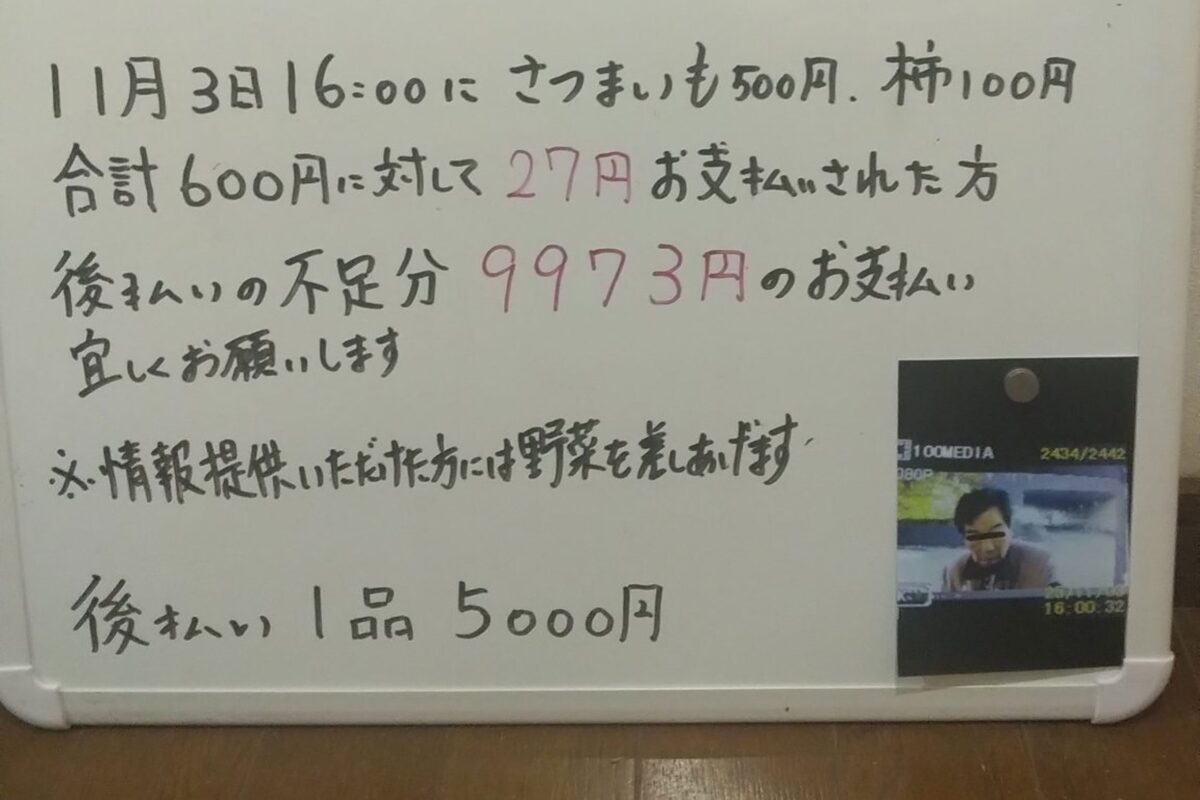 11月3日16:00に さつまいも500円、柿100円
合計600円に対して 27円 お支払いされた方
後払いの不足分 9973円のお支払い
宜しくお願いします
※情報提供いただけた方には野菜を差しあげます
後払い 1品 5000円
100MEDIA 2434/2442
080P
16:00:32